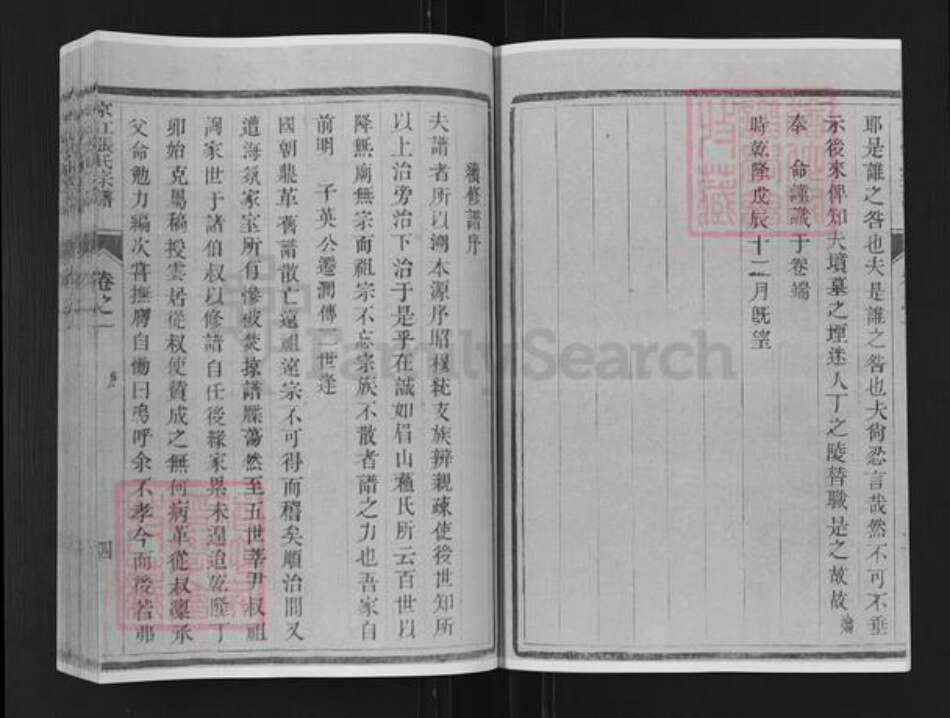 耶是誰之咎也夫是誰之咎也夫尙忍言哉然不可不垂
示後來俾知夫墳墓之堙迷人丁之陵替職是之故故
奉 命謹識于卷端
時乾隆戊辰十二月旣望
續修譜序
夫譜者所以溯本源序昭穆統支族辨親疎使後世知所
以上治旁治下治于是乎在誠如眉山蘓氏所云百世以
降無廟無宗而祖宗不忘宗族不散者譜之力也吾家自
前明 子英公遷潤傳一世逢
國朝鼎革舊譜散亡遠祖遠宗不可得而稽矣順治間又
遭海氛家室所有慘被焚掠譜牒蕩然至五世莘尹叔祖
詢家世于諸伯叔以修譜自任後緣家累未遑迨乾隆丁
卯始克屬稿授雲居從叔使贊成之無何病革從叔稟承
父命勉力編次嘗撫膺自慟曰嗚呼余不孝今而後若弗
京江張氏宗譜
卷之一
四
FamilySearch